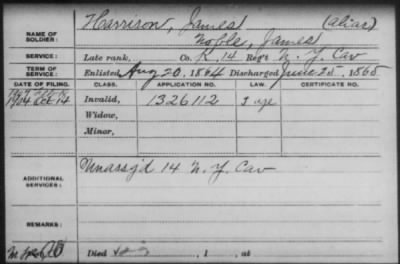 NAME OF SOLDIER: Harrison, James (alias)
Noble, James
SERVICE: Late rank, Co. K. 14 Reg't N. Y. Cav
TERM OF SERVICE: Enlisted Aug 20, 1864 Discharged June 25, 1865
DATE OF FILING. CLASS. APPLICATION NO. LAW. CERTIFICATE NO.
1904 Oct 14 Invalid, 1326112
Widow,
Minor,
ADDITIONAL SERVICES: Unass'g'd 14 N. Y. Cav
REMARKS:
Died , 1 , at